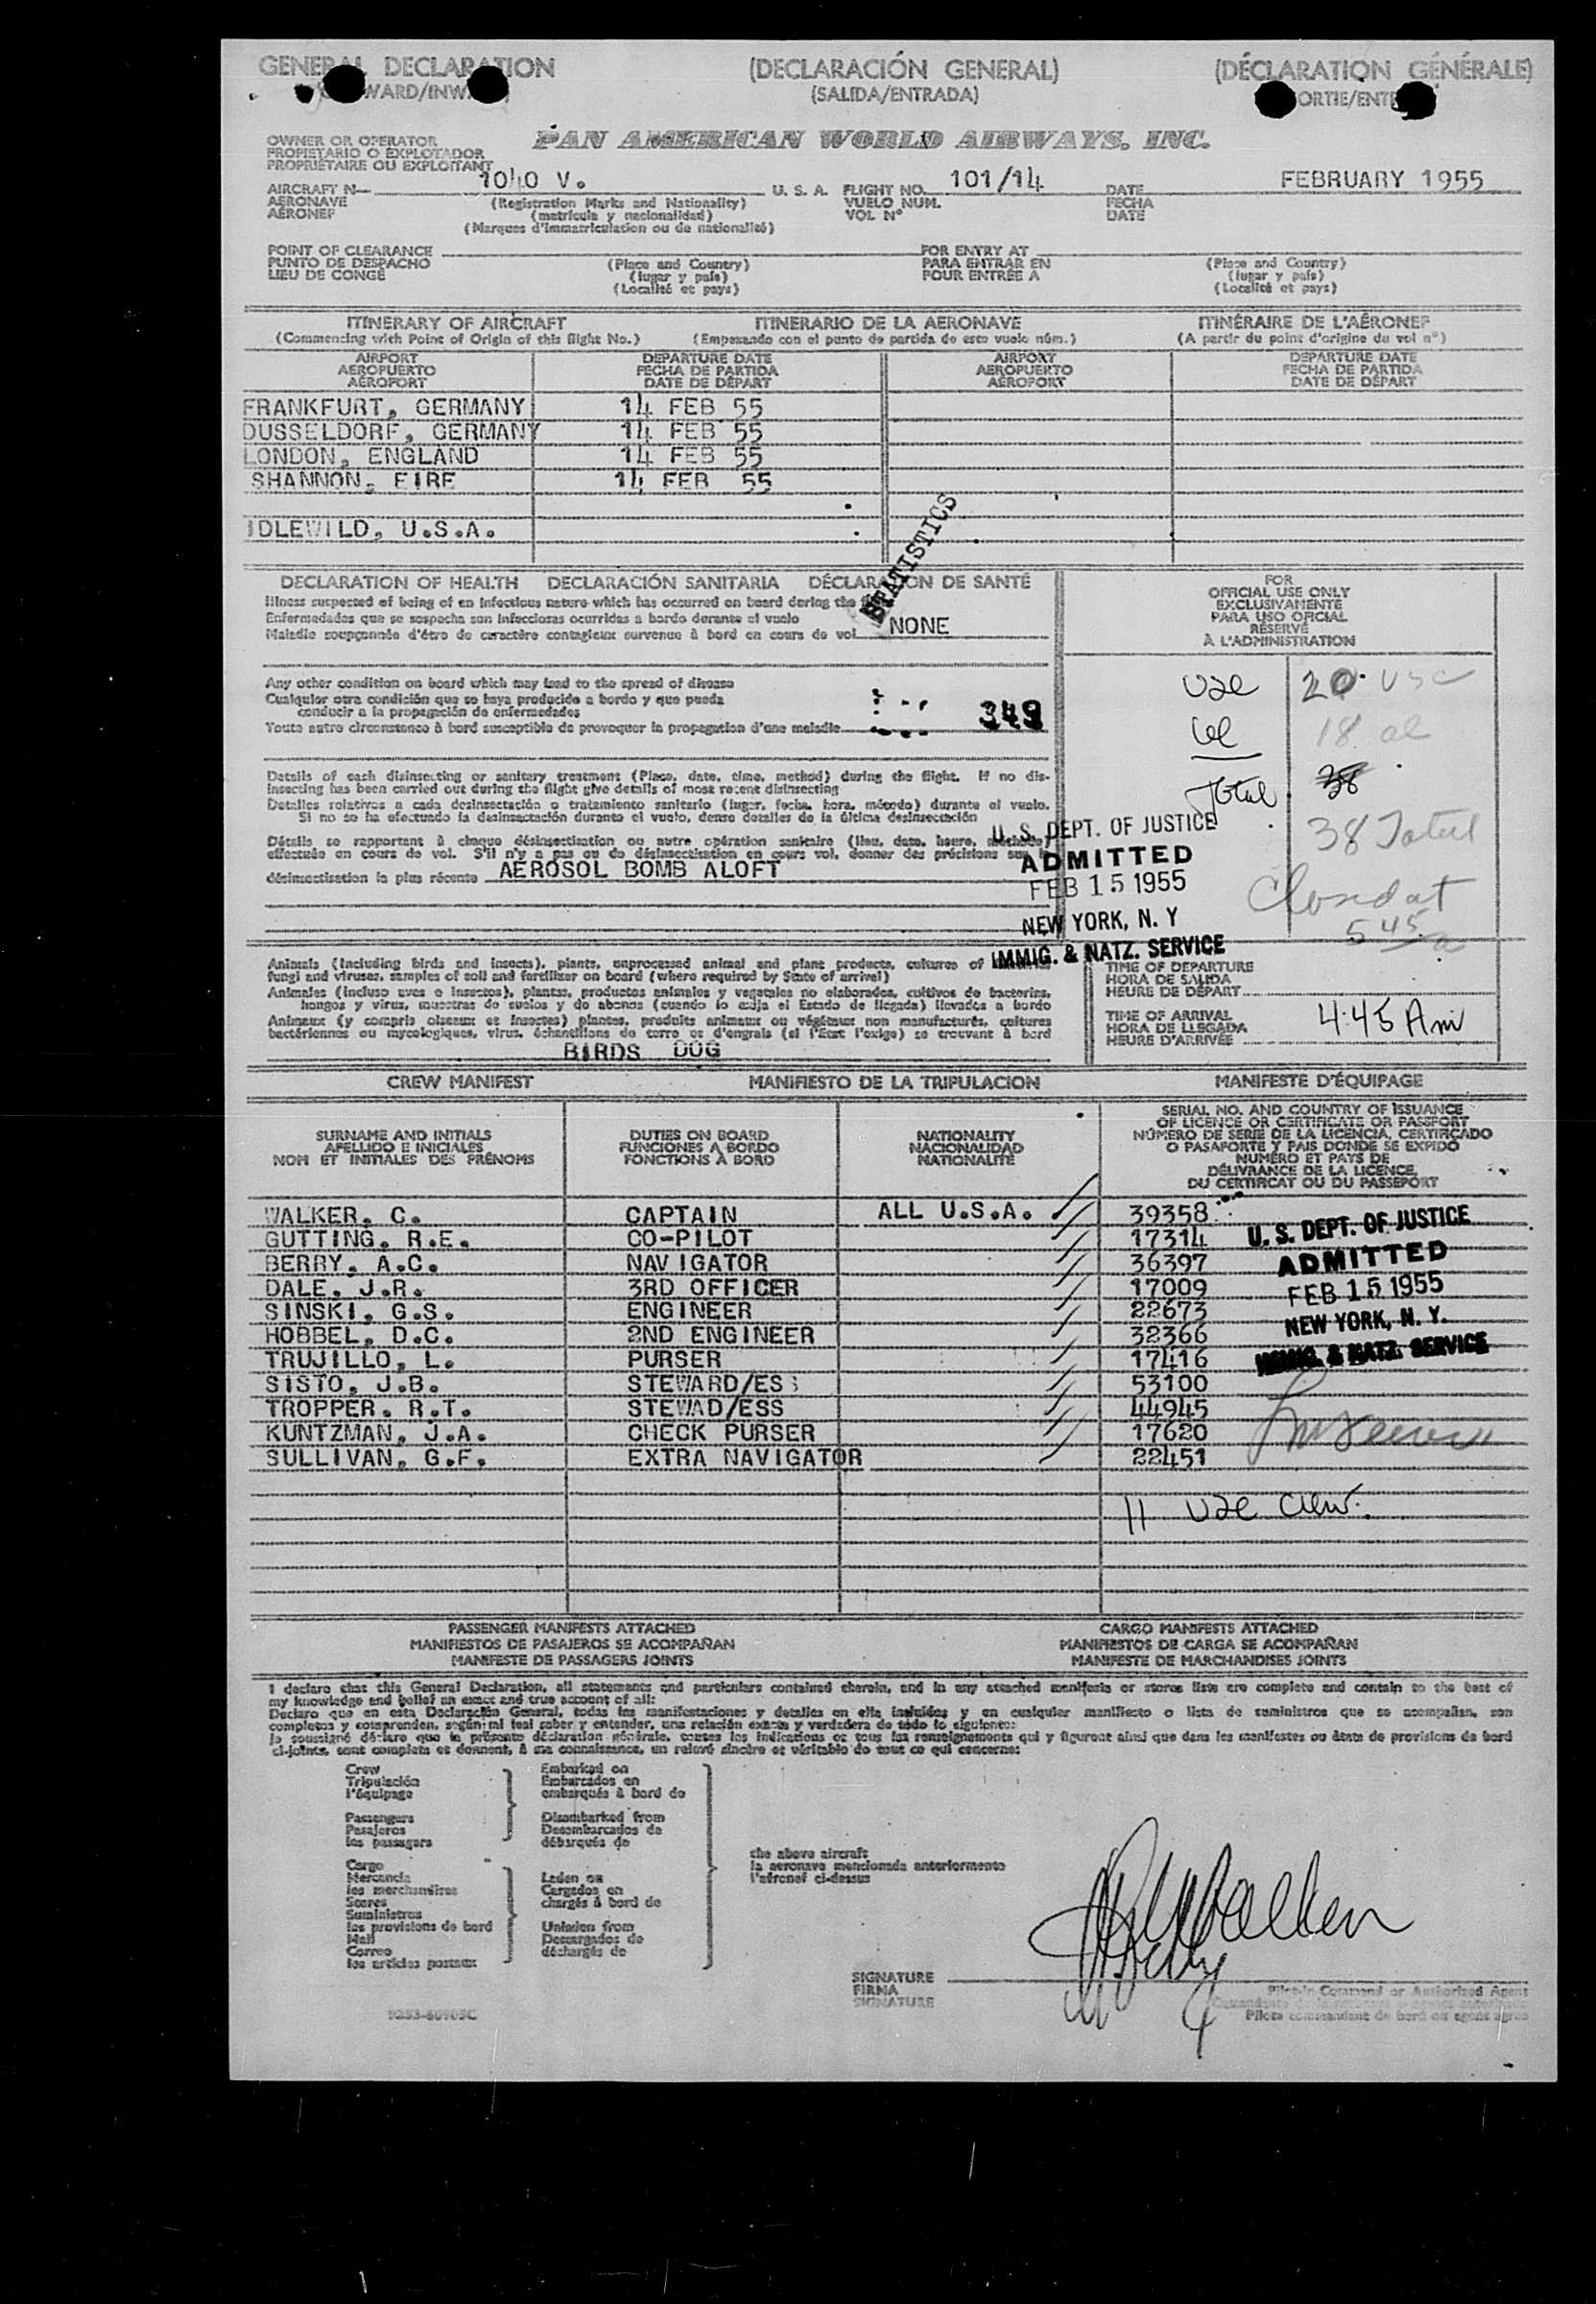 GENERAL DECLARATION (DECLARACIÓN GENERAL) (DÉCLARATION GÉNÉRALE)
(SALIDA/ENTRADA)
OWNER OR OPERATOR PAN AMERICAN WORLD AIRWAYS, INC.
PROPIETARIO O EXPLOTADOR
PROPRIÉTAIRE OU EXPLOITANT
AIRCRAFT N— 1040 V. U. S. A. FLIGHT NO. 101/14 DATE FEBRUARY 1955
AERONAVE (Registration Marks and Nationality) VUELO NUM. FECHA
AÉRONEF (matrícula y nacionalidad) VOL Nº DATE
(Marques d'immatriculation ou de nationalité)
POINT OF CLEARANCE FOR ENTRY AT
PUNTO DE DESPACHO (Place and Country) PARA ENTRAR EN (Place and Country)
LIEU DE CONGÉ (lugar y país) POUR ENTRÉE A (lugar y país)
(Localité et pays) (Localité et pays)
ITINERARY OF AIRCRAFT ITINERARIO DE LA AERONAVE ITINÉRAIRE DE L'AÉRONEF
(Commencing with Point of Origin of this flight No.) (Empezando con el punto de partida de este vuelo núm.) (A partir du point d'origine du vol nº)
AIRPORT DEPARTURE DATE AIRPORT DEPARTURE DATE
AEROPUERTO FECHA DE PARTIDA AEROPUERTO FECHA DE PARTIDA
AÉROPORT DATE DE DÉPART AÉROPORT DATE DE DÉPART
FRANKFURT, GERMANY 14 FEB 55
DUSSELDORF, GERMANY 14 FEB 55
LONDON, ENGLAND 14 FEB 55
SHANNON, EIRE 14 FEB 55
IDLEWILD, U.S.A.
STATISTICS
DECLARATION OF HEALTH DECLARACIÓN SANITARIA DÉCLARATION DE SANTÉ
Illness suspected of being of an infectious nature which has occurred on board during the
Enfermedades que se sospecha son infecciosas ocurridas a bordo durante el vuelo
Maladie soupçonnée d'être de caractère contagieux survenue à bord en cours de vol NONE
Any other condition on board which may lead to the spread of disease
Cualquier otra condición que se haya producido a bordo y que pueda
conducir a la propagación de enfermedades
Toute autre circonstance à bord susceptible de provoquer la propagation d'une maladie 349
Details of each disinsecting or sanitary treatment (Place, date, time, method) during the flight. If no dis-
insecting has been carried out during the flight give details of most recent disinsecting
Detalles relativos a cada desinsectación o tratamiento sanitario (lugar, fecha, hora, método) durante el vuelo.
Si no se ha efectuado la desinsectación durante el vuelo, dense detalles de la última desinsectación
Détails se rapportant à chaque désinsectisation ou autre opération sanitaire (lieu, date, heure, méthode)
effectuée en cours de vol. S'il n'y a pas eu de désinsectisation en cours vol, donner des précisions sur la
désinsectisation la plus récente AEROSOL BOMB ALOFT
FOR
OFFICIAL USE ONLY
EXCLUSIVAMENTE
PARA USO OFICIAL
RÉSERVÉ
À L'ADMINISTRATION
USC 20 USC
al 18 al
Total 38
38 Total
Closed at
5 45 a
U. S. DEPT. OF JUSTICE
ADMITTED
FEB 15 1955
NEW YORK, N. Y
IMMIG. & NATZ. SERVICE
Animals (including birds and insects), plants, unprocessed animal and plant products, cultures of
fungi and viruses, samples of soil and fertilizer on board (where required by State of arrival)
Animales (incluso aves e insectos), plantas, productos animales y vegetales no elaborados, cultivos de bacterias,
hongos y virus, muestras de suelos y de abonos (cuando lo exija el Estado de llegada) llevados a bordo
Animaux (y compris oiseaux et insectes) plantes, produits animaux ou végétaux non manufacturés, cultures
bactériennes ou mycologiques, virus, échantillons de terre et d'engrais (si l'État l'exige) se trouvant à bord
BIRDS DOG
TIME OF DEPARTURE
HORA DE SALIDA
HEURE DE DÉPART
TIME OF ARRIVAL
HORA DE LLEGADA 4:45 Am
HEURE D'ARRIVÉE
CREW MANIFEST MANIFIESTO DE LA TRIPULACION MANIFESTE D'ÉQUIPAGE
SURNAME AND INITIALS
APELLIDO E INICIALES
NOM ET INITIALES DES PRÉNOMS
DUTIES ON BOARD
FUNCIONES A BORDO
FONCTIONS À BORD
NATIONALITY
NACIONALIDAD
NATIONALITÉ
SERIAL NO. AND COUNTRY OF ISSUANCE
OF LICENCE OR CERTIFICATE OR PASSPORT
NÚMERO DE SERIE DE LA LICENCIA, CERTIFICADO
O PASAPORTE Y PAIS DONDE SE EXPIDÓ
NUMÉRO ET PAYS DE
DÉLIVRANCE DE LA LICENCE,
DU CERTIFICAT OU DU PASSEPORT
WALKER, C. CAPTAIN ALL U.S.A. 39358
GUTTING, R.E. CO-PILOT 17314
BERRY, A.C. NAVIGATOR 36397
DALE, J.R. 3RD OFFICER 17009
SINSKI, G.S. ENGINEER 22673
HOBBEL, D.C. 2ND ENGINEER 32366
TRUJILLO, L. PURSER 17416
SISTO, J.B. STEWARD/ESS 53100
TROPPER, R.T. STEWAD/ESS 44945
KUNTZMAN, J.A. CHECK PURSER 17620
SULLIVAN, G.F. EXTRA NAVIGATOR 22451
U. S. DEPT. OF JUSTICE
ADMITTED
FEB 15 1955
NEW YORK, N. Y.
IMMIG. & NATZ. SERVICE
11 USC crew.
PASSENGER MANIFESTS ATTACHED CARGO MANIFESTS ATTACHED
MANIFIESTOS DE PASAJEROS SE ACOMPAÑAN MANIFIESTOS DE CARGA SE ACOMPAÑAN
MANIFESTE DE PASSAGERS JOINTS MANIFESTE DE MARCHANDISES JOINTS
I declare that this General Declaration, all statements and particulars contained therein, and in any attached manifests or stores lists are complete and contain to the best of
my knowledge and belief an exact and true account of all:
Declaro que en esta Declaración General, todas las manifestaciones y detalles en ella incluidos y en cualquier manifiesto o lista de suministros que se acompañan, son
completos y comprenden, según mi leal saber y entender, una relación exacta y verdadera de todo lo siguiente:
Je soussigné déclare que la présente déclaration générale, toutes les indications et tous les renseignements qui y figurent ainsi que dans les manifestes ou états de provisions de bord
ci-joints, sont complets et donnent, à ma connaissance, un relevé sincère et véritable de tout ce qui concerne:
Crew Embarked on
Tripulación Embarcados en
l'équipage embarqués à bord de
Passengers Disembarked from
Pasajeros Desembarcados de
les passagers débarqués de
the above aircraft
la aeronave mencionada anteriormente
l'aéronef ci-dessus
Cargo
Mercancía Laden on
les marchandises Cargados en
Stores chargés à bord de
Suministros
les provisions de bord Unladen from
Mail Descargados de
Correo déchargés de
les articles postaux
SIGNATURE
FIRMA Pilot-in Command or Authorized Agent
SIGNATURE
Pilote commandant de bord ou agent agréé
9253-60905C